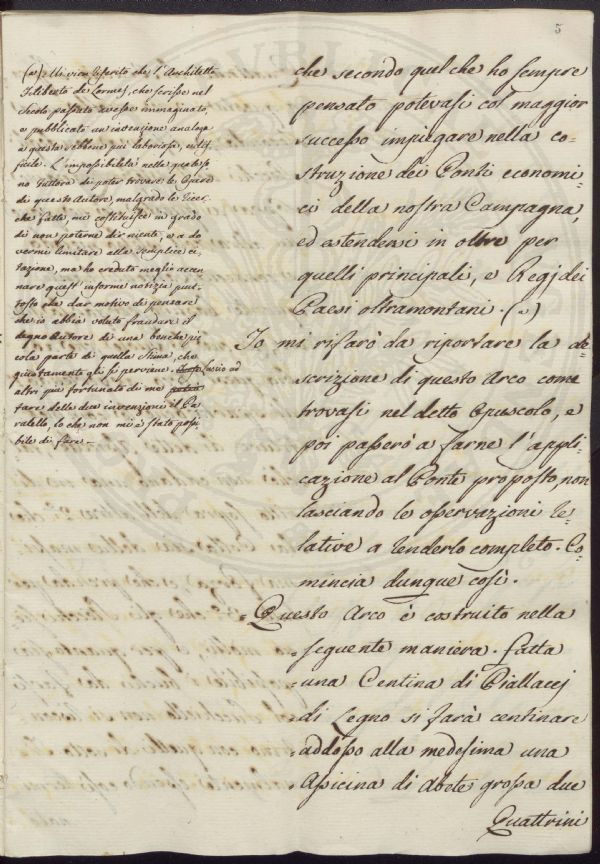 5
(a) Mi vien riferito che l'Architetto
Filiberto de Lormes, che scrisse nel
secolo passato avesse immaginato,
e pubblicato un'invenzione analoga
a questa sebbene più laboriosa, e dif-
ficile. L'impossibilità nella quale so-
no tuttora di poter trovare le Opere
di questo Autore, malgrado le ricer-
che fatte, mi costituisce in grado
di non poterne dir niente, e a do-
vermi limitare alla semplice ci-
tazione, ma ho creduto meglio accen-
nare quest'informe notizia piut-
tosto che dar motivo di pensare
che io abbia voluto fraudare il
degno Autore di una benchè pic-
cola parte di quella stima, che
giustamente gli si perviene. lascio ad
altri più fortunato di me
fare delle due invenzione il Pa-
ralello, lo che non mi è stato possi-
bile di fare.-
che secondo quel che ho sempre
pensato potevasi col maggior
successo impiegare nella co-
struzione dei Ponti economi-
ci della nostra Campagna,
ed estendersi in oltre per
quelli principali, e Regj dei
Paesi oltramontani. (a)
Io mi rifarò da riportare la de-
scrizione di questo Arco come
trovasi nel detto Opuscolo, e
poi passerò a farne l'appli-
cazione al Ponte proposto, non
lasciando le osservazioni re-
lative a renderlo completo. Co-
mincia dunque così.
"Questo Arco è costruito nella
"seguente maniera. Fatta
"una Centina di Piallacej
"di Legno si farà centinare
"addosso alla medesima una
"Asicina di Abete grossa due
Quattrini